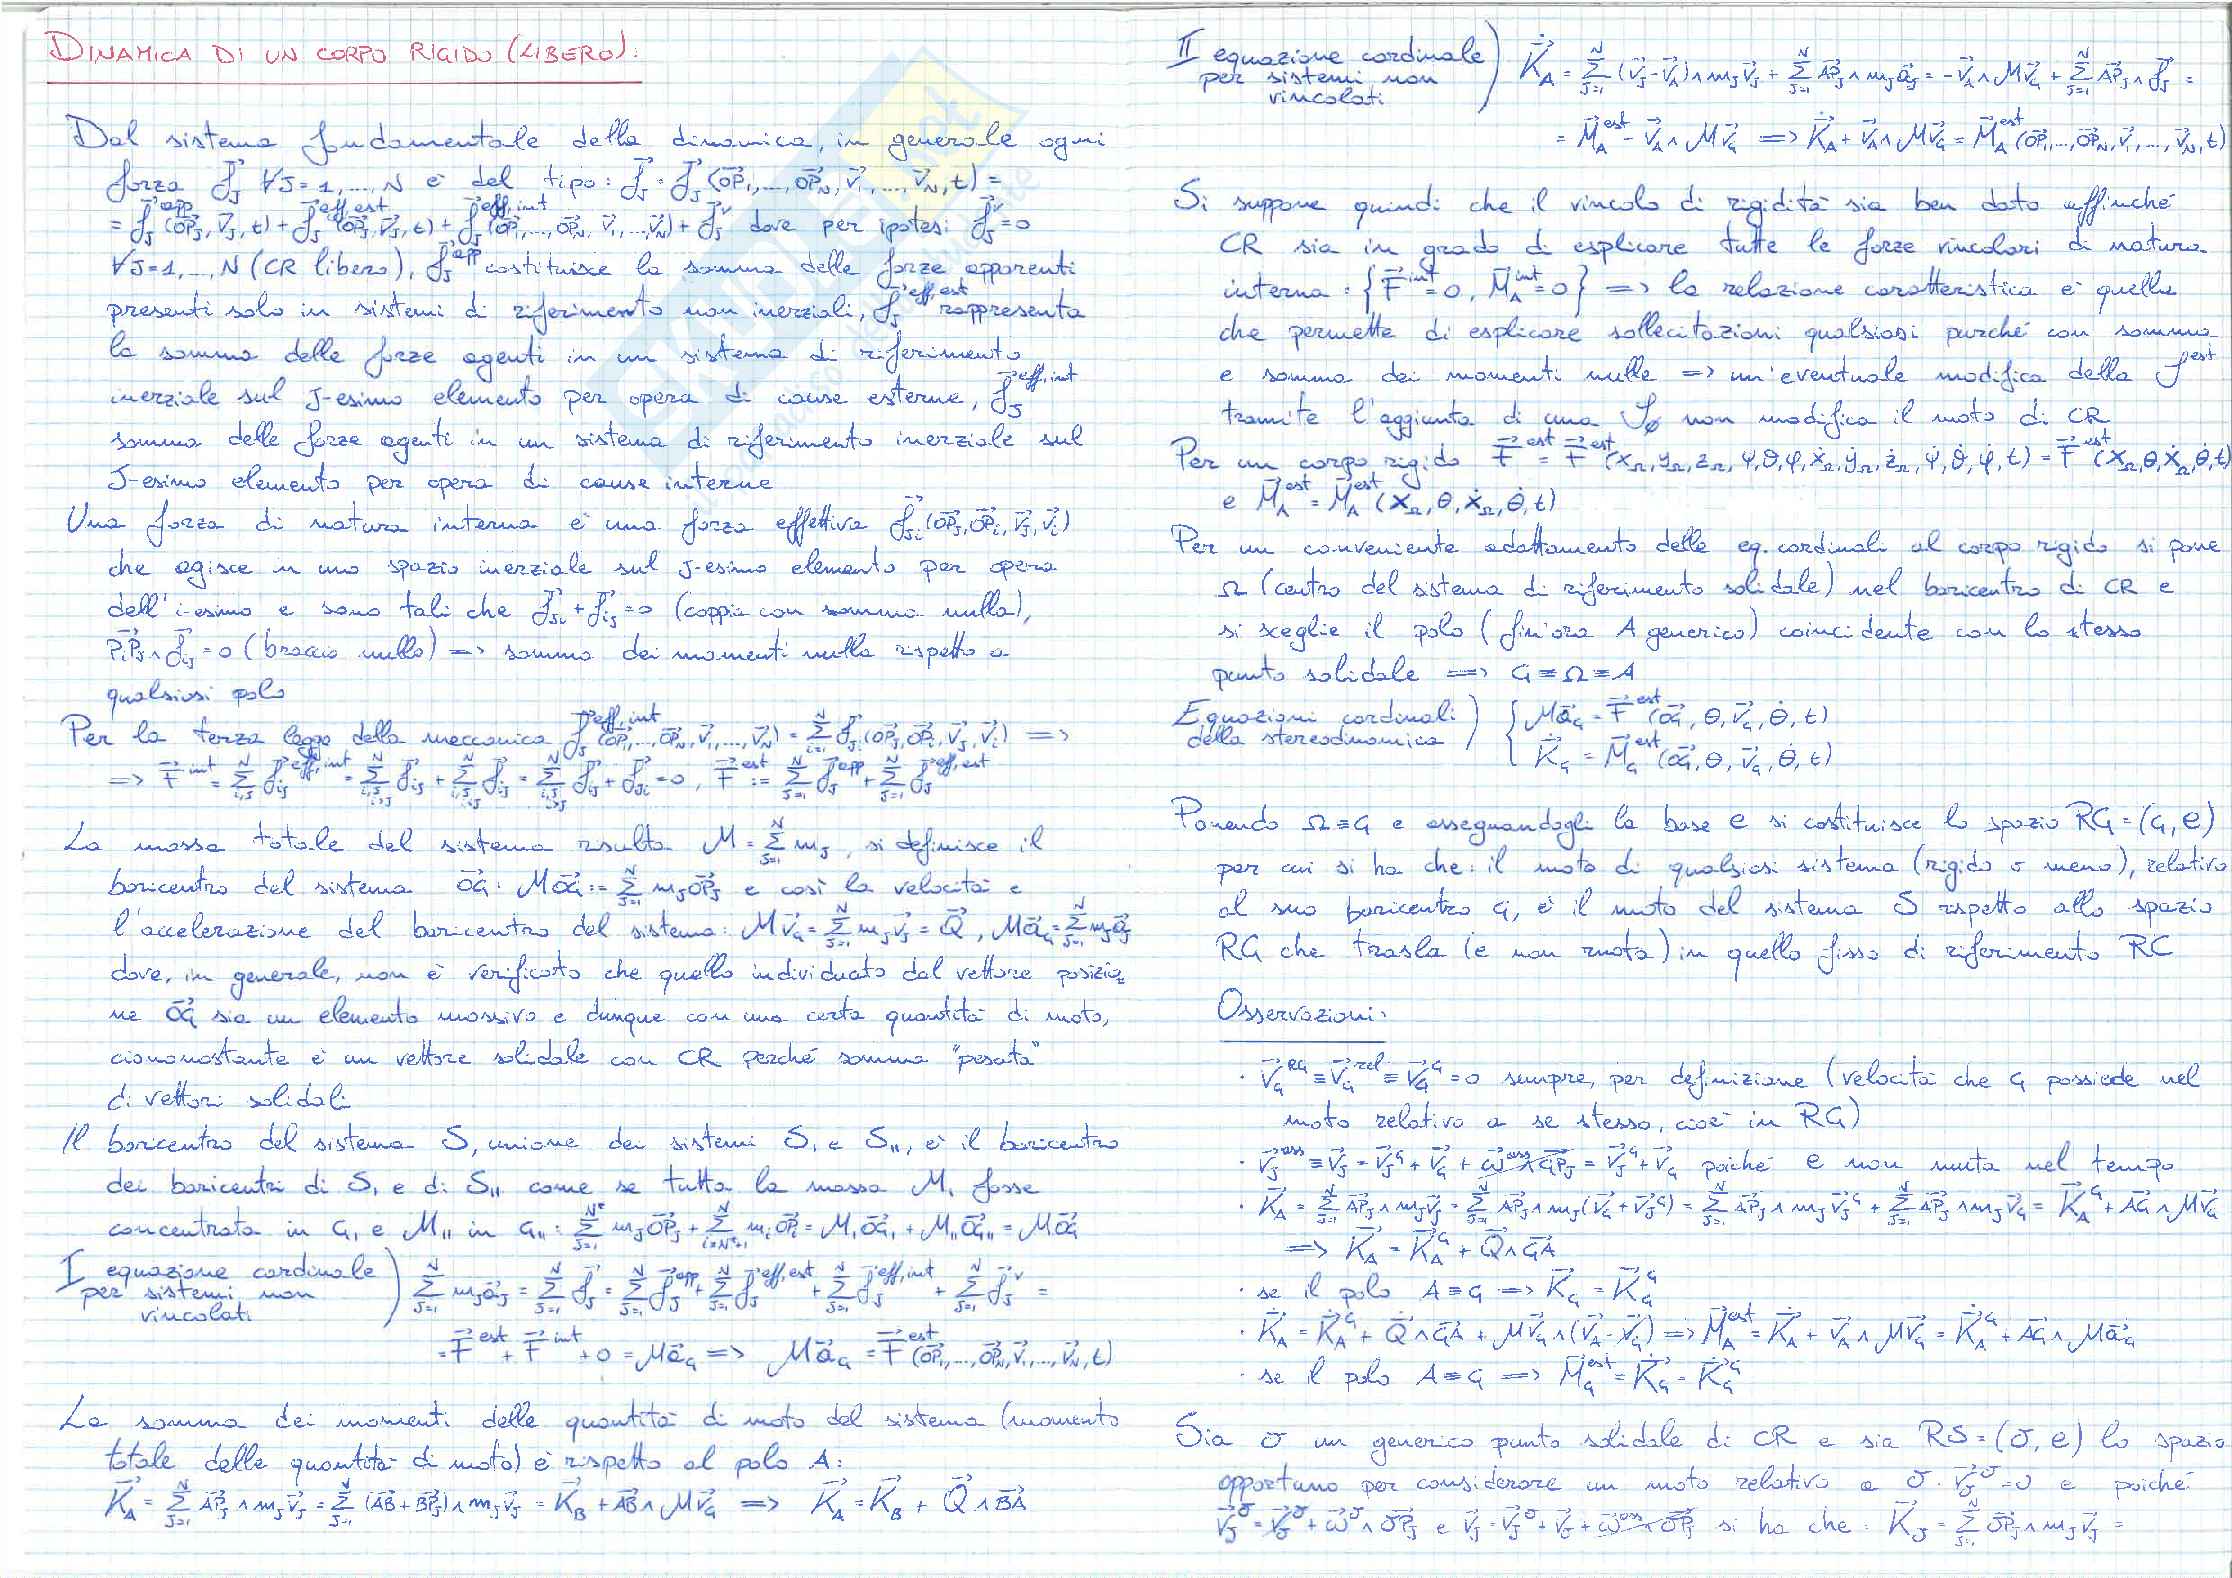 DINAMICA DI UN CORPO RIGIDO (LIBERO):
Dal sistema fondamentale della dinamica, in generale ogni
forza f⃗_J ∀J=1,...,N è del tipo: f⃗_J = f⃗_J (OP⃗_1,...,OP⃗_N, v⃗_1,...,v⃗_N, t) =
= f⃗_J^app (OP⃗_J, v⃗_J, t) + f⃗_J^eff,est (OP⃗_J, v⃗_J, t) + f⃗_J^eff,int (OP⃗_1,...,OP⃗_N, v⃗_1,...,v⃗_N) + f⃗_J^v dove per ipotesi f⃗_J^v = 0
∀J=1,...,N (CR libero), f⃗_J^app costituisce la somma delle forze apparenti
presenti solo in sistemi di riferimento non inerziali, f⃗_J^eff,est rappresenta
la somma delle forze agenti in un sistema di riferimento
inerziale sul J-esimo elemento per opera di cause esterne, f⃗_J^eff,int
somma delle forze agenti in un sistema di riferimento inerziale sul
J-esimo elemento per opera di cause interne
Una forza di natura interna è una forza effettiva f⃗_Ji (OP⃗_J, OP⃗_i, v⃗_J, v⃗_i)
che agisce in uno spazio inerziale sul J-esimo elemento per opera
dell'i-esimo e sono tali che f⃗_Ji + f⃗_iJ = 0 (coppia con somma nulla),
P_iP_J⃗ ∧ f⃗_iJ = 0 (braccio nullo) => somma dei momenti nulla rispetto a
qualsiasi polo
Per la terza legge della meccanica f⃗_J^eff,int (OP⃗_1,...,OP⃗_N, v⃗_1,...,v⃗_N) = Σ_{i=1}^N f⃗_Ji (OP⃗_J, OP⃗_i, v⃗_J, v⃗_i) =>
=> F⃗^int = Σ_{i,J}^N f⃗_iJ^eff,int = Σ_{i,J i>J}^N f⃗_iJ + Σ_{i,J i<J}^N f⃗_iJ = Σ_{i,J i>J}^N f⃗_iJ + f⃗_Ji = 0, F⃗^est := Σ_{J=1}^N f⃗_J^app + Σ_{J=1}^N f⃗_J^eff,est
La massa totale del sistema risulta M = Σ_{J=1}^N m_J, si definisce il
baricentro del sistema OG⃗ : M OG⃗ := Σ_{J=1}^N m_J OP⃗_J e così la velocità e
l'accelerazione del baricentro del sistema: M v⃗_G = Σ_{J=1}^N m_J v⃗_J = Q⃗, M a⃗_G = Σ_{J=1}^N m_J a⃗_J
dove, in generale, non è verificato che quello individuato dal vettore posizio
ne OG⃗ sia un elemento massivo e dunque con una certa quantità di moto,
ciononostante è un vettore solidale con CR perché somma "pesata"
di vettori solidali
Il baricentro del sistema S, unione dei sistemi S_I e S_II, è il baricentro
dei baricentri di S_I e di S_II come se tutta la massa M_I fosse
concentrata in G_I e M_II in G_II : Σ_{J=1}^{N*} m_J OP⃗_J + Σ_{i=N*+1}^N m_i OP⃗_i = M_I OG⃗_I + M_II OG⃗_II = M OG⃗
I equazione cardinale
per sistemi non
vincolati
) Σ_{J=1}^N m_J a⃗_J = Σ_{J=1}^N f⃗_J = Σ_{J=1}^N f⃗_J^app + Σ_{J=1}^N f⃗_J^eff,est + Σ_{J=1}^N f⃗_J^eff,int + Σ_{J=1}^N f⃗_J^v =
= F⃗^est + F⃗^int + 0 = M a⃗_G => M a⃗_G = F⃗^est (OP⃗_1,...,OP⃗_N, v⃗_1,...,v⃗_N, t)
La somma dei momenti delle quantità di moto del sistema (momento
totale delle quantità di moto) è rispetto al polo A:
K⃗_A = Σ_{J=1}^N AP⃗_J ∧ m_J v⃗_J = Σ_{J=1}^N (AB⃗ + BP⃗_J) ∧ m_J v⃗_J = K⃗_B + AB⃗ ∧ M v⃗_G => K⃗_A = K⃗_B + Q⃗ ∧ BA⃗
II equazione cardinale
per sistemi non
vincolati
) K̇⃗_A = Σ_{J=1}^N (v⃗_J - v⃗_A) ∧ m_J v⃗_J + Σ_{J=1}^N AP⃗_J ∧ m_J a⃗_J = -v⃗_A ∧ M v⃗_G + Σ_{J=1}^N AP⃗_J ∧ f⃗_J =
= M⃗_A^est - v⃗_A ∧ M v⃗_G => K̇⃗_A + v⃗_A ∧ M v⃗_G = M⃗_A^est (OP⃗_1,...,OP⃗_N, v⃗_1,...,v⃗_N, t)
Si suppone quindi che il vincolo di rigidità sia ben dato affinché
CR sia in grado di esplicare tutte le forze vincolari di natura
interna : {F⃗^int = 0, M⃗_A^int = 0} => la relazione caratteristica è quella
che permette di esplicare sollecitazioni qualsiasi purché con somma
e somma dei momenti nulle => un'eventuale modifica della f^est
tramite l'aggiunta di una f_φ non modifica il moto di CR
Per un corpo rigido F⃗^est = F⃗^est (x_Ω, y_Ω, z_Ω, ψ, θ, φ, ẋ_Ω, ẏ_Ω, ż_Ω, ψ̇, θ̇, φ̇, t) = F⃗^est (x_Ω, θ, ẋ_Ω, θ̇, t)
e M⃗_A^est = M⃗_A^est (x_Ω, θ, ẋ_Ω, θ̇, t)
Per un conveniente adattamento delle eq. cardinali al corpo rigido si pone
Ω (centro del sistema di riferimento solidale) nel baricentro di CR e
si sceglie il polo (fin'ora A generico) coincidente con lo stesso
punto solidale => G ≡ Ω ≡ A
Equazioni cardinali
della stereodinamica
) { M a⃗_G = F⃗^est (OG⃗, θ, v⃗_G, θ̇, t)
K̇⃗_G = M⃗_G^est (OG⃗, θ, v⃗_G, θ̇, t)
Ponendo Ω ≡ G e assegnandogli la base e si costituisce lo spazio RG = (G, e)
per cui si ha che: il moto di qualsiasi sistema (rigido o meno), relativo
al suo baricentro G, è il moto del sistema S rispetto allo spazio
RG che trasla (e non ruota) in quello fisso di riferimento RC
Osservazioni:
· v⃗_G^RG ≡ v⃗_G^rel ≡ v⃗_G^G = 0 sempre, per definizione (velocità che G possiede nel
moto relativo a se stesso, cioè in RG)
· v⃗_J^ass ≡ v⃗_J = v⃗_J^G + v⃗_G + ω⃗^ass ∧ GP⃗_J = v⃗_J^G + v⃗_G poiché e non muta nel tempo
· K⃗_A = Σ_{J=1}^N AP⃗_J ∧ m_J v⃗_J = Σ_{J=1}^N AP⃗_J ∧ m_J (v⃗_G + v⃗_J^G) = Σ_{J=1}^N AP⃗_J ∧ m_J v⃗_J^G + Σ_{J=1}^N AP⃗_J ∧ m_J v⃗_G = K⃗_A^G + AG⃗ ∧ M v⃗_G
=> K⃗_A = K⃗_A^G + Q⃗ ∧ GA⃗
· se il polo A ≡ G => K⃗_G = K⃗_G^G
· K̇⃗_A = K̇⃗_A^G + Q̇⃗ ∧ GA⃗ + M v⃗_G ∧ (v⃗_A - v⃗_G) => M⃗_A^est = K̇⃗_A + v⃗_A ∧ M v⃗_G = K̇⃗_A^G + AG⃗ ∧ M a⃗_G
· se il polo A ≡ G => M⃗_G^est = K̇⃗_G = K̇⃗_G^G
Sia σ un generico punto solidale di CR e sia RS = (σ, e) lo spazio
opportuno per considerare un moto relativo a σ. v⃗_σ^σ = 0 e poiché
v⃗_J^σ = v⃗_σ^σ + ω⃗^σ ∧ σP⃗_J e v⃗_J = v⃗_J^σ + v⃗_σ + ω⃗^ass ∧ σP⃗_J si ha che : K⃗_σ = Σ_{J=1}^N σP⃗_J ∧ m_J v⃗_J =